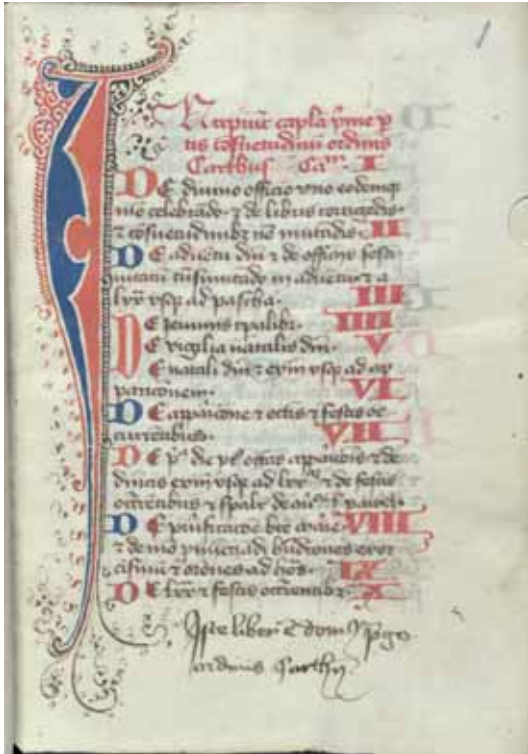 1
Incipiūt capla p̄me p̄
tis cōsuetudinū ordinis
Cartus̄ Cam. I
DE divino officio vno eodemq̄
mō celebrādo ⁊ de libris corrigēdis
⁊ cōsuetudinibꝫ nō mutādis II
DE aduētu dn̄i ⁊ de officijs festi
uitatū in aduētu ⁊ a
lxx vsq̄ ad pascha. III
DE ieiunijs tp̄alibꝫ. IIII
DE vigilia natalis dn̄i. V
DE natali dn̄i ⁊ exin vsq̄ ad ap
paricōnem. VI
DE apparicōne ⁊ octis ⁊ festis oc
currētibus. VII
DE p̄ die pꝰ octas apparicōis ⁊ de
dn̄icis exin vsq̄ ad lxx ⁊ de festis
occrētibus ⁊ sp̄alr de
DE purificacōe bt̄e marie VIII
⁊ de mō ad
⁊ ad IX
DE lxx ⁊ festis occrrentibꝫ X
Iste liber ē dom
ordinis Carth